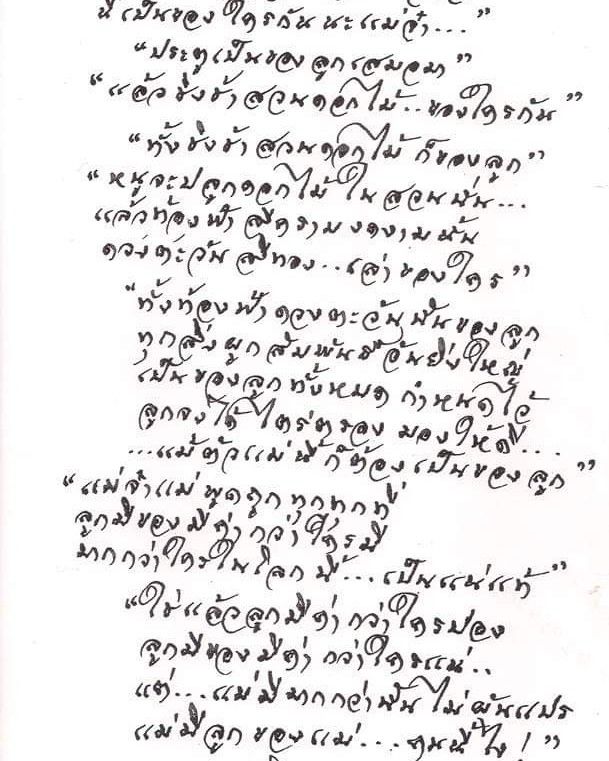 นี้เป็นของใครกันนะแม่จ๋า...”
“ประตูเป็นของลูกเสมอมา”
“แล้วชิงช้าสวนดอกไม้..ของใครกัน”
“ทั้งชิงช้าสวนดอกไม้ ก็ของลูก”
“หนูจะปลูกดอกไม้ในสวนนั่น...
แล้วท้องฟ้าสีครามงดงามนั้น
ดวงตะวันสีทอง...เล่าของใคร”
“ทั้งท้องฟ้าดวงตะวันนั้นของลูก
ทุกสิ่งผูกสัมพันธ์อันยิ่งใหญ่
เป็นของลูกทั้งหมดกำหนดไว้
ลูกจงได้ไตร่ตรองมองให้ดี....
...แม้ตัวแม่นี้ก็ต้องเป็นของลูก”
“แม่จ๋าแม่พูดถูกทุกทุกที่
ลูกมีของมีค่ากว่าใครมี
มากกว่าใครในโลกนี้...เป็นแน่แท้”
“ใช่แล้วลูกมีค่ากว่าใครปอง
ลูกมีของมีค่ากว่าใครแน่..
แต่...แม่มีมากกว่านั้นไม่ผันแปร
แม่มีลูกของแม่....คนนี้ไง!”